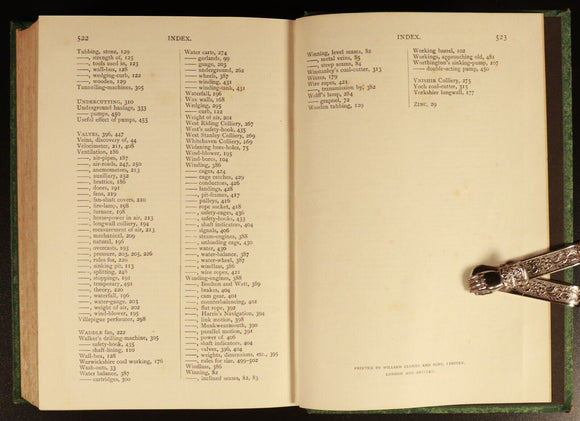 522
INDEX.
Tubbing, stone, 129
——, strength of, 125
——, tools used in, 123
——, wall-box, 128
——, wedging-curb, 122
——, wooden, 129
Tunnelling-machines, 305
UNDERCUTTING, 310
Underground haulage, 333
—— pumps, 450
Useful effect of pumps, 455
VALVES, 396, 447
Veins, discovery of, 44
Velocimeter, 211, 408
Ventilation, 186
——, air-pipes, 187
——, air-roads, 247, 250
——, anemometers, 213
——, auxiliary, 232
——, brattice, 186
——, doors, 191
——, fans, 219
——, fan-shaft covers, 220
——, fire-lamp, 198
——, furnace, 198
——, horse-power in air, 213
——, longwall colliery, 194
——, measurement of air, 213
——, mechanical, 209
——, natural, 196
——, overcasts, 193
——, pressure, 203, 205, 206
——, rides for, 220
——, sinking pit, 113
——, splitting, 248
——, stoppings, 191
——, temporary, 491
——, theory, 220
——, waterfall, 196
——, water-gauge, 203
——, weight of air, 202
——, wind-blower, 195
Villepigue perforator, 298
WADDLE fan, 222
Walker's drilling-machine, 305
—— safety-hook, 435
—— shaft-lining, 110
Wall-box, 128
Warwickshire coal working, 176
Wash-outs, 33
Water balance, 387
—— cartridges, 300
Water carts, 274
—— garlands, 99
—— gauge, 205
—— underground, 262
—— wheels, 387
—— winding, 431
—— winding-tank, 431
Waterfall, 196
Wax walls, 268
Wedging, 295
—— curb, 122
Weight of air, 201
West Riding Colliery, 267
West's safety-hook, 435
West Stanley Colliery, 269
Whitehaven Colliery, 169
Widening bore-holes, 75
Wind-blower, 195
Wind-bores, 104
Winding, 386
—— cages, 424
—— cage catches, 429
—— conductors, 426
—— landings, 428
——, pit-frames, 417
——, pulleys, 416
—— rope socket, 418
——, safety-cages, 436
——, safety-hooks, 433
——, shaft indicators, 404
—— signals, 406
—— steam-engines, 388
——, unloading cage, 430
—— water, 430
——, water-balance, 387
——, water-wheel, 387
——, windlass, 386
——, wire ropes, 421
Winding-engines, 388
——, Boulton and Watt, 389
——, brakes, 404
——, cam gear, 401
——, counterbalancing, 402
——, flat rope, 392
——, Harris's Navigation, 394
——, link motion, 398
——, Monkwearmouth, 390
——, parallel motion, 391
——, power of, 406
——, shaft indicators, 404
——, valves, 396, 404
——, weights, dimensions, etc., 395
——, rules for size, 499-502
Windlass, 386
Winning, 82
——, inclined seams, 82, 83
INDEX.
523
Winning, level seams, 82
——, metal veins, 85
——, steep seams, 84
Winstanley's coal-cutter, 313
Winzes, 179
Wire ropes, 421
——, transmission by, 382
Wolff's lamp, 284
—— grapnel, 72
Wooden tubbing, 129
Working barrel, 102
Workings, approaching old, 481
Worthington's sinking-pump, 107
—— double-acting pump, 450
YNISHIR Colliery, 275
York coal-cutter, 315
Yorkshire longwall, 177
ZINC, 29
PRINTED BY WILLIAM CLOWES AND SONS, LIMITED,
LONDON AND BECCLES.